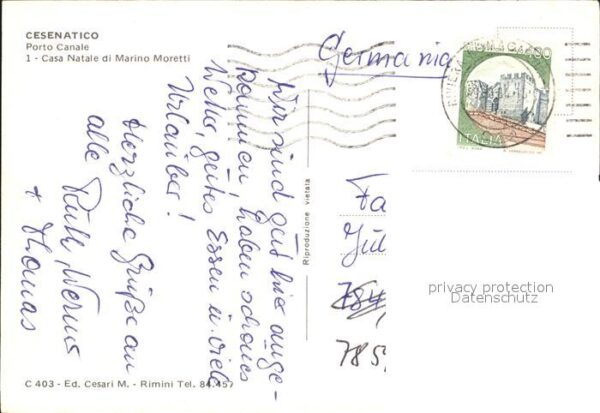 CESENATICO
Porto Canale
1 - Casa Natale di Marino Moretti
Germania
Wir sind gut hier ange-
kommen, haben schönes
Wetter, gutes Essen u. viele
Urlauber!
Herzliche Grüße an
alle Ruth, Werner
+ Thomas
Riproduzione vietata
ITALIA
Fa
Jul
784
785
privacy protection
Datenschutz
C 403 - Ed. Cesari M. - Rimini Tel. 84.457